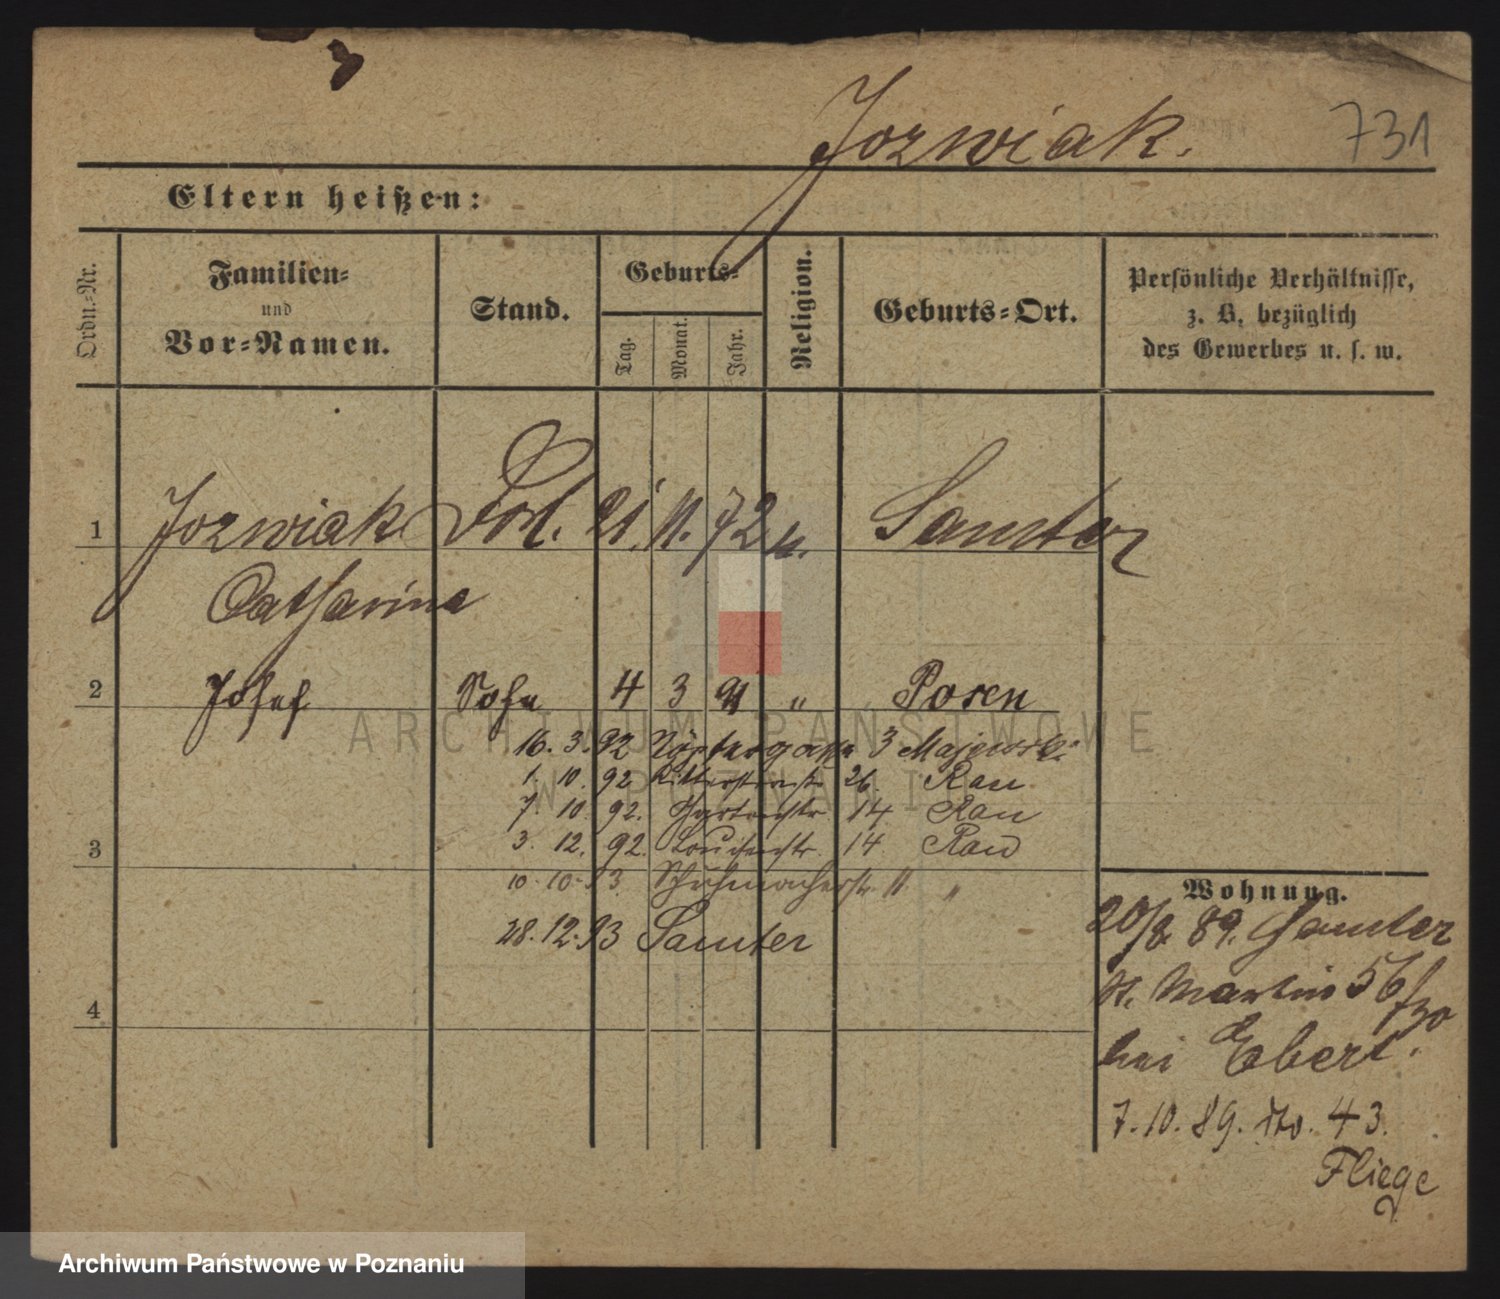 Jozwiak.
731
Eltern heißen:
Ordn.-Nr.
Familien-
und
Vor-Namen.
Stand.
Geburts-
Tag.
Monat.
Jahr.
Religion.
Geburts-Ort.
Persönliche Verhältnisse,
z. B. bezüglich
des Gewerbes u. s. w.
1 Jozwiak 21. 11. 72 Samter
Catharina
2 Josef Sohn 4 3 91 " Posen
ARCHIWUM PAŃSTWOWE
W POZNANIU
16. 3. 92 Töpfergasse 3 Majewski
1. 10. 92 Ritterstr. 26. Rau
7. 10. 92. Gartenstr. 14 Rau
3. 12. 92. Louisenstr. 14 Rau
3
10. 10. 93 Schuhmacherstr. 11 "
28. 12. 93 Samter
4
Wohnung.
20/8 89. Samter
St. Martin 56/
bei Ebert.
7. 10. 89. dto. 43.
Fliege
Archiwum Państwowe w Poznaniu